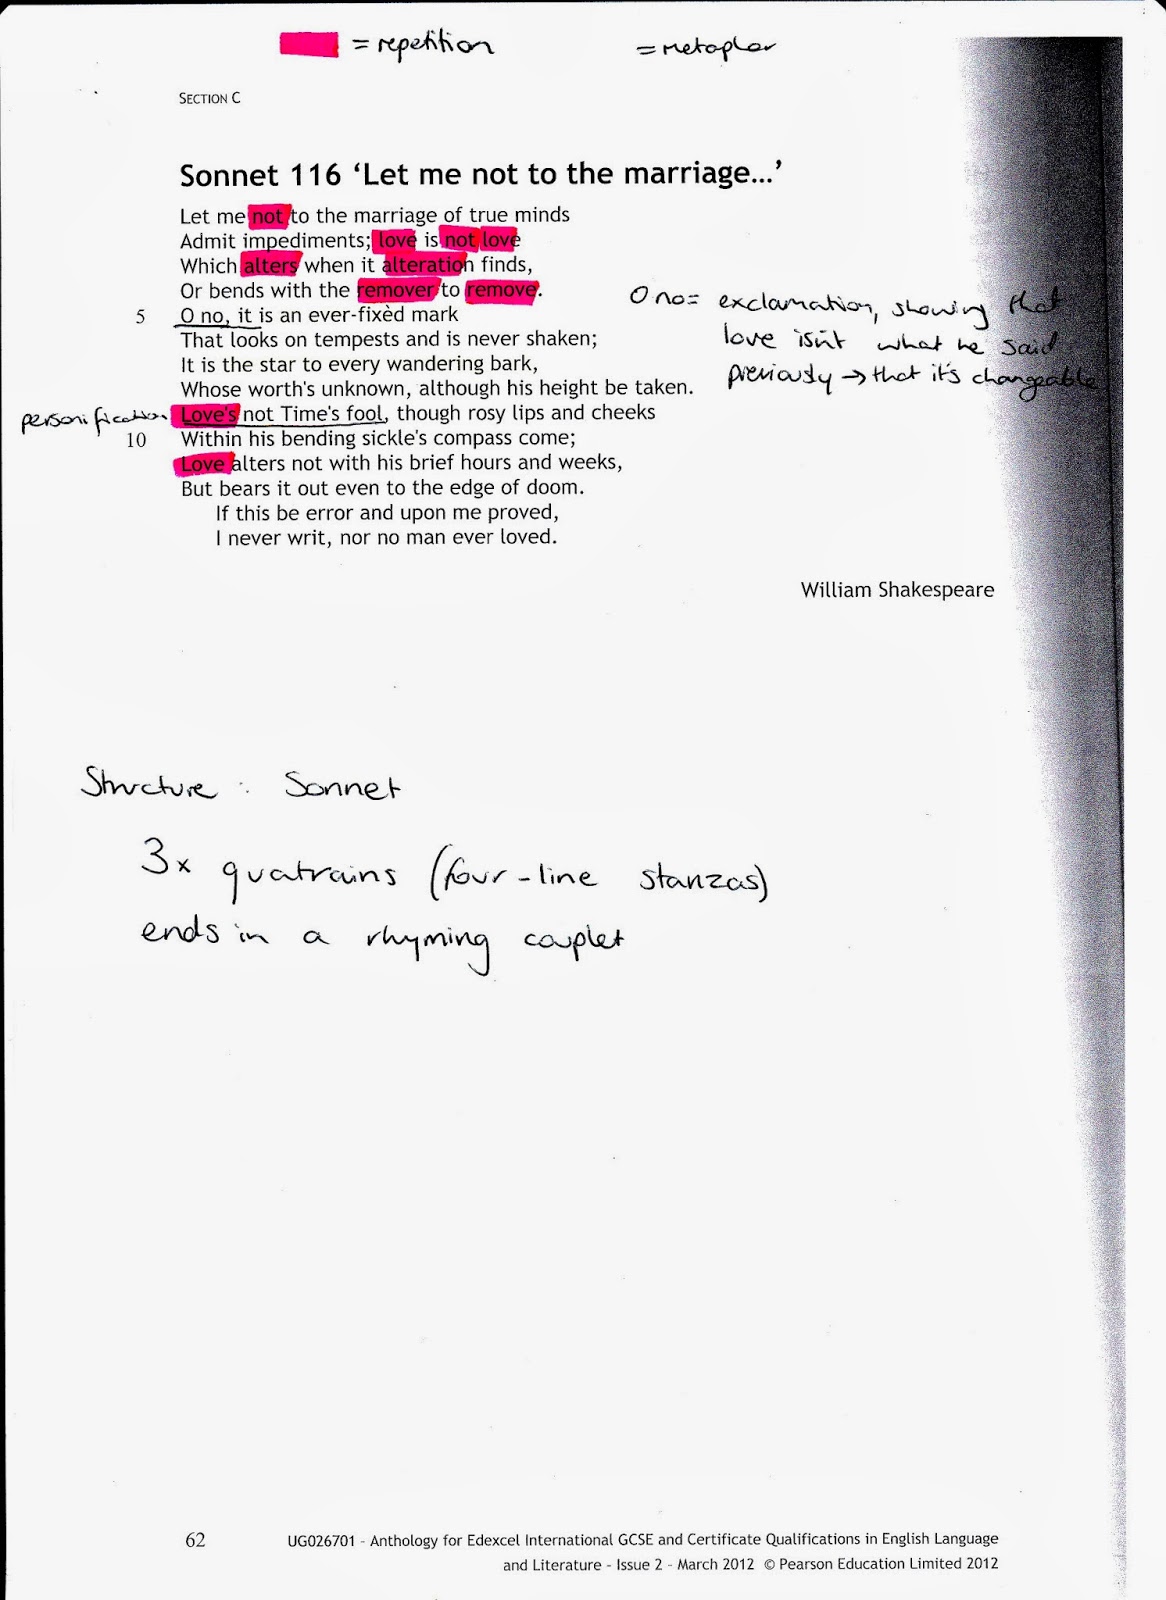 = repetition
= metaphor
SECTION C
Sonnet 116 ‘Let me not to the marriage...’
Let me not to the marriage of true minds
Admit impediments; love is not love
Which alters when it alteration finds,
Or bends with the remover to remove.
5 O no, it is an ever-fixèd mark
That looks on tempests and is never shaken;
It is the star to every wandering bark,
Whose worth's unknown, although his height be taken.
O no = exclamation, showing that
love isn't what he said
previously → that it's changeable
personification
Love's not Time's fool, though rosy lips and cheeks
10 Within his bending sickle's compass come;
Love alters not with his brief hours and weeks,
But bears it out even to the edge of doom.
If this be error and upon me proved,
I never writ, nor no man ever loved.
William Shakespeare
Structure : Sonnet
3x quatrains (four-line stanzas)
ends in a rhyming couplet
62 UG026701 - Anthology for Edexcel International GCSE and Certificate Qualifications in English Language
and Literature - Issue 2 - March 2012 © Pearson Education Limited 2012